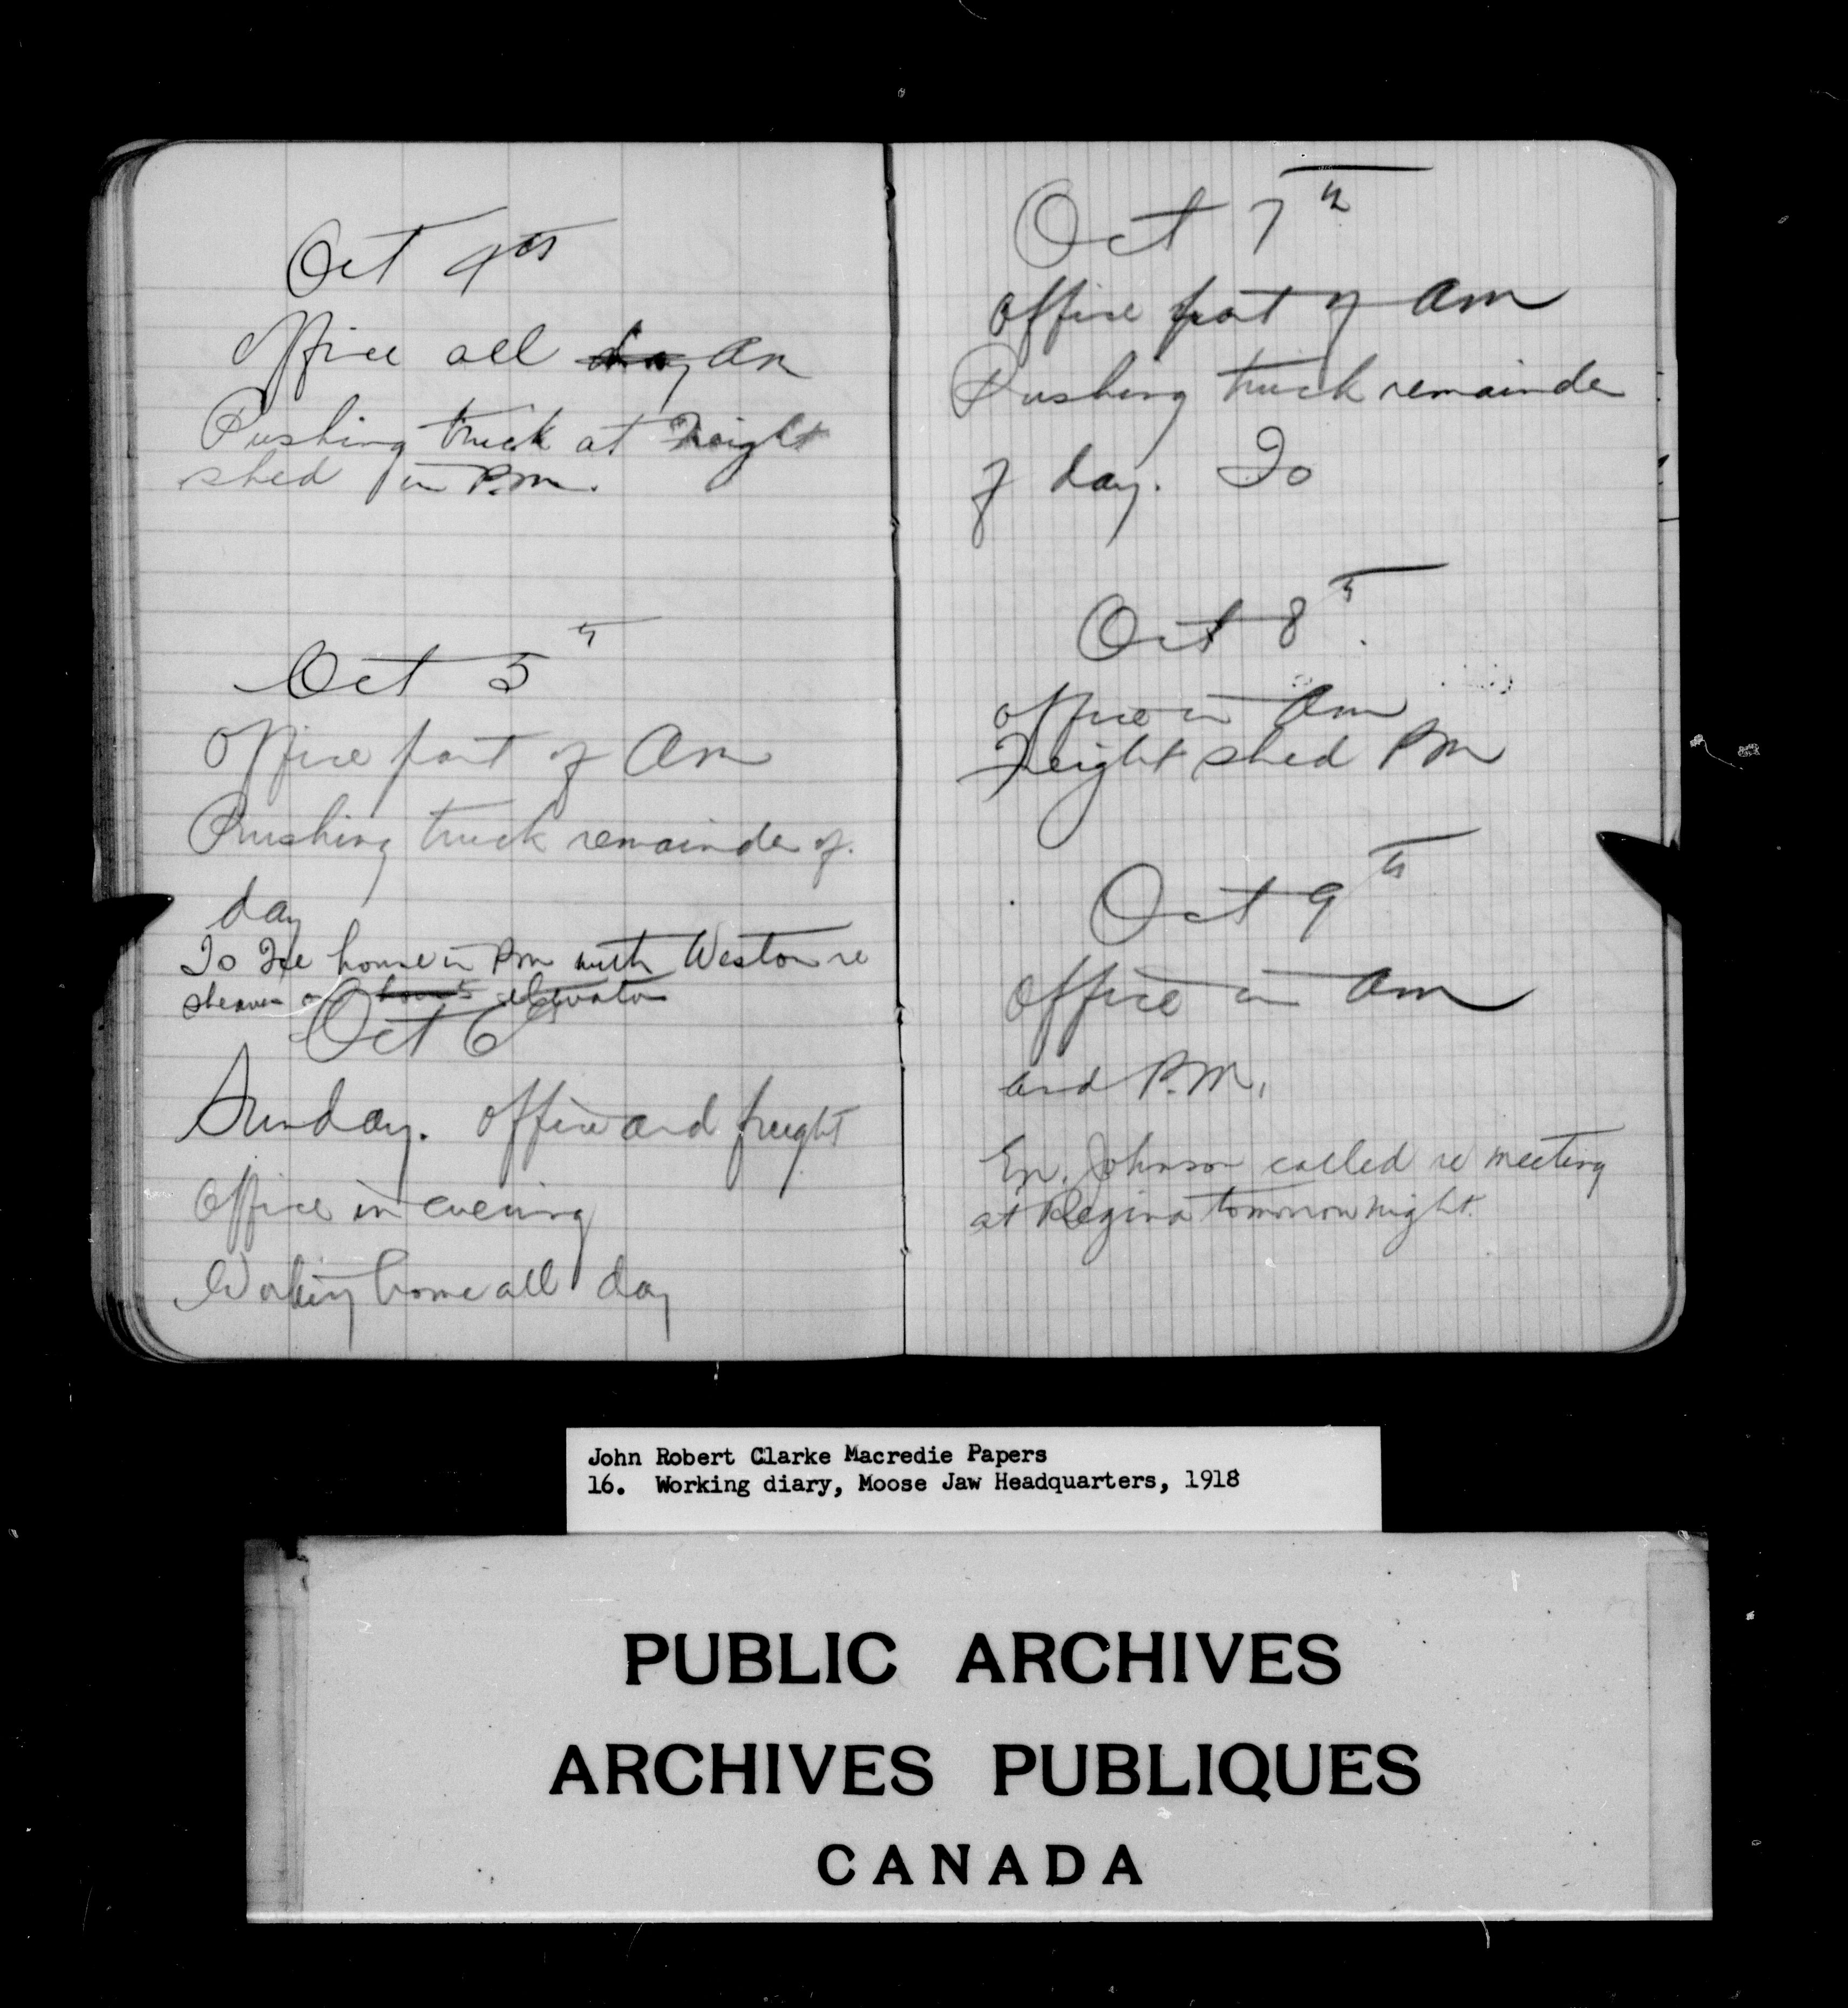 Oct 4th
Office all day Am
Pushing truck at Freight
shed in P.m.
Oct 5th
Office part of Am
Pushing truck remainder of
day
To Ice house in Pm with Weston re
sheave on house elevator
Oct 6th
Sunday. Office and freight
Office in evening
Working home all day
Oct 7th
Office part of am
Pushing truck remainder
of day. To
Oct 8th
Office in Am
Freight shed PM
Oct 9th
Office in am
and P.M.
En. Johnson called re meeting
at Regina tomorrow night.
John Robert Clarke Macredie Papers
16. Working diary, Moose Jaw Headquarters, 1918
PUBLIC ARCHIVES
ARCHIVES PUBLIQUES
CANADA